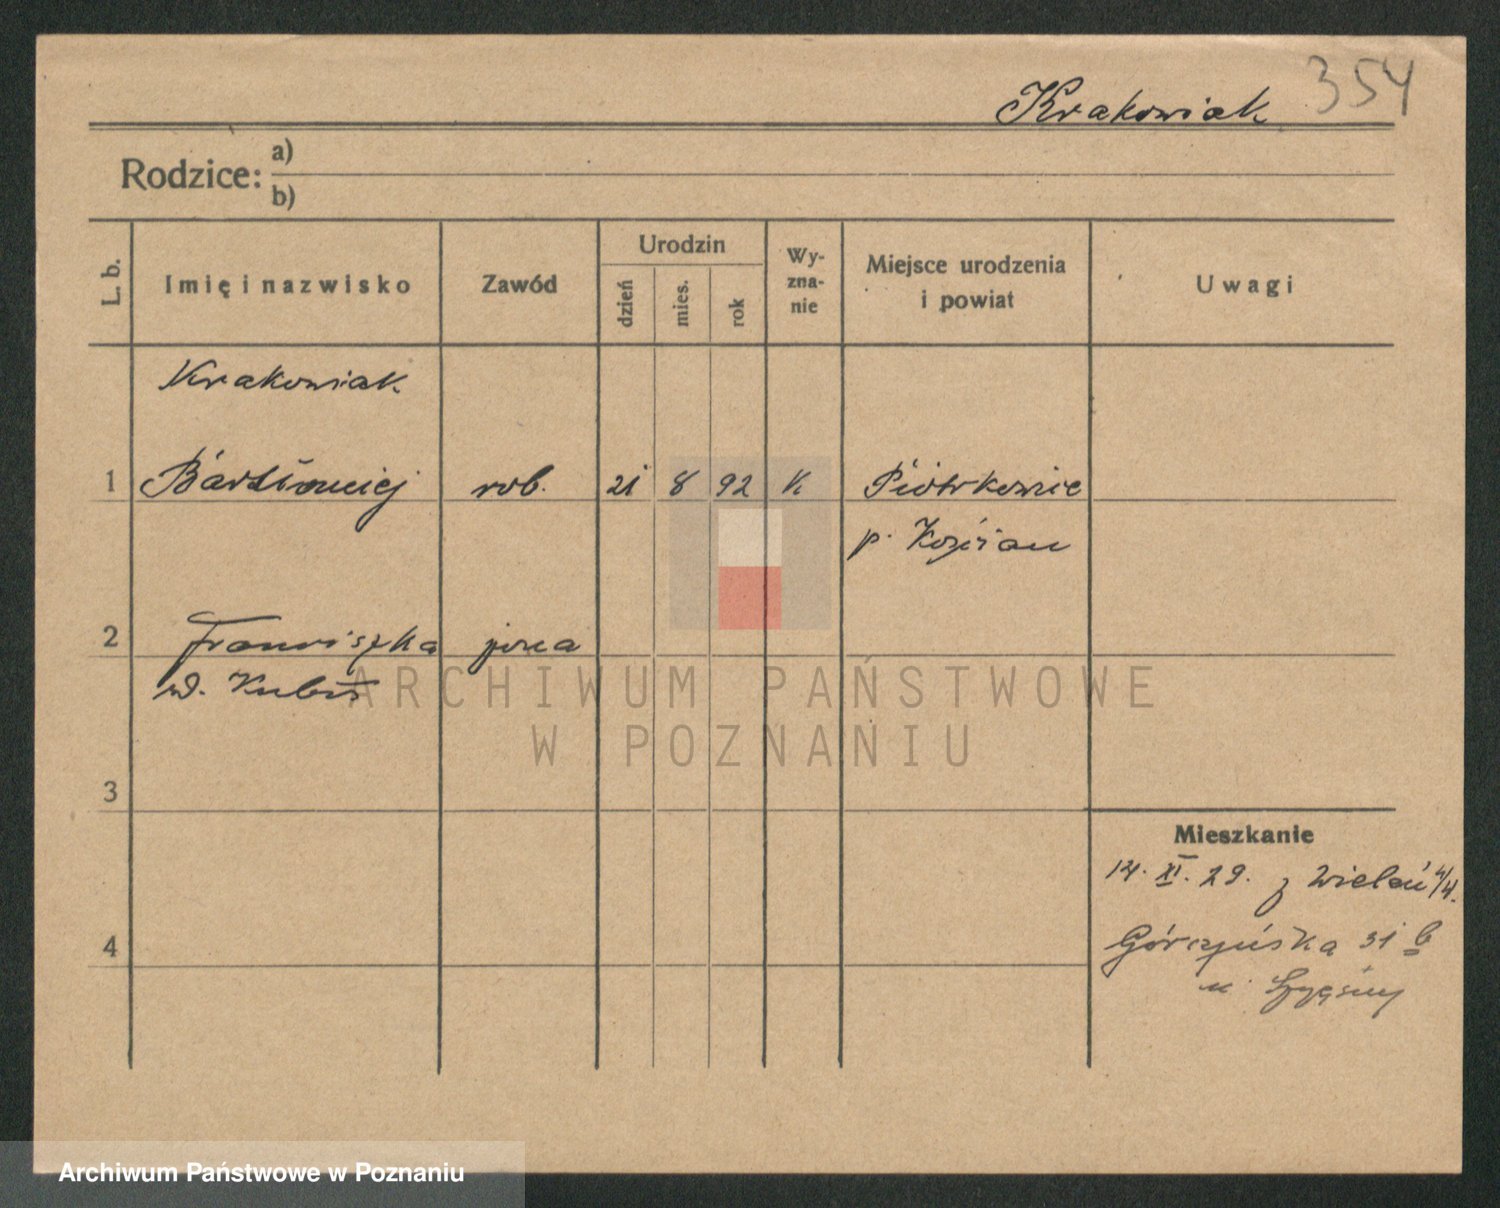 Krakowiak 354
Rodzice: a)
b)
L. b. Imię i nazwisko Zawód Urodzin dzień mies. rok Wy-zna-nie Miejsce urodzenia i powiat Uwagi
Krakowiak
1 Bartłomiej rob. 21 8 92 K Piotrkowie
p. Kościan
2 Franciszka żona
3
Mieszkanie
14. XI. 29. z Wieleń
4 Górczyńska 31 b
u
ARCHIWUM PAŃSTWOWE
W POZNANIU
Archiwum Państwowe w Poznaniu